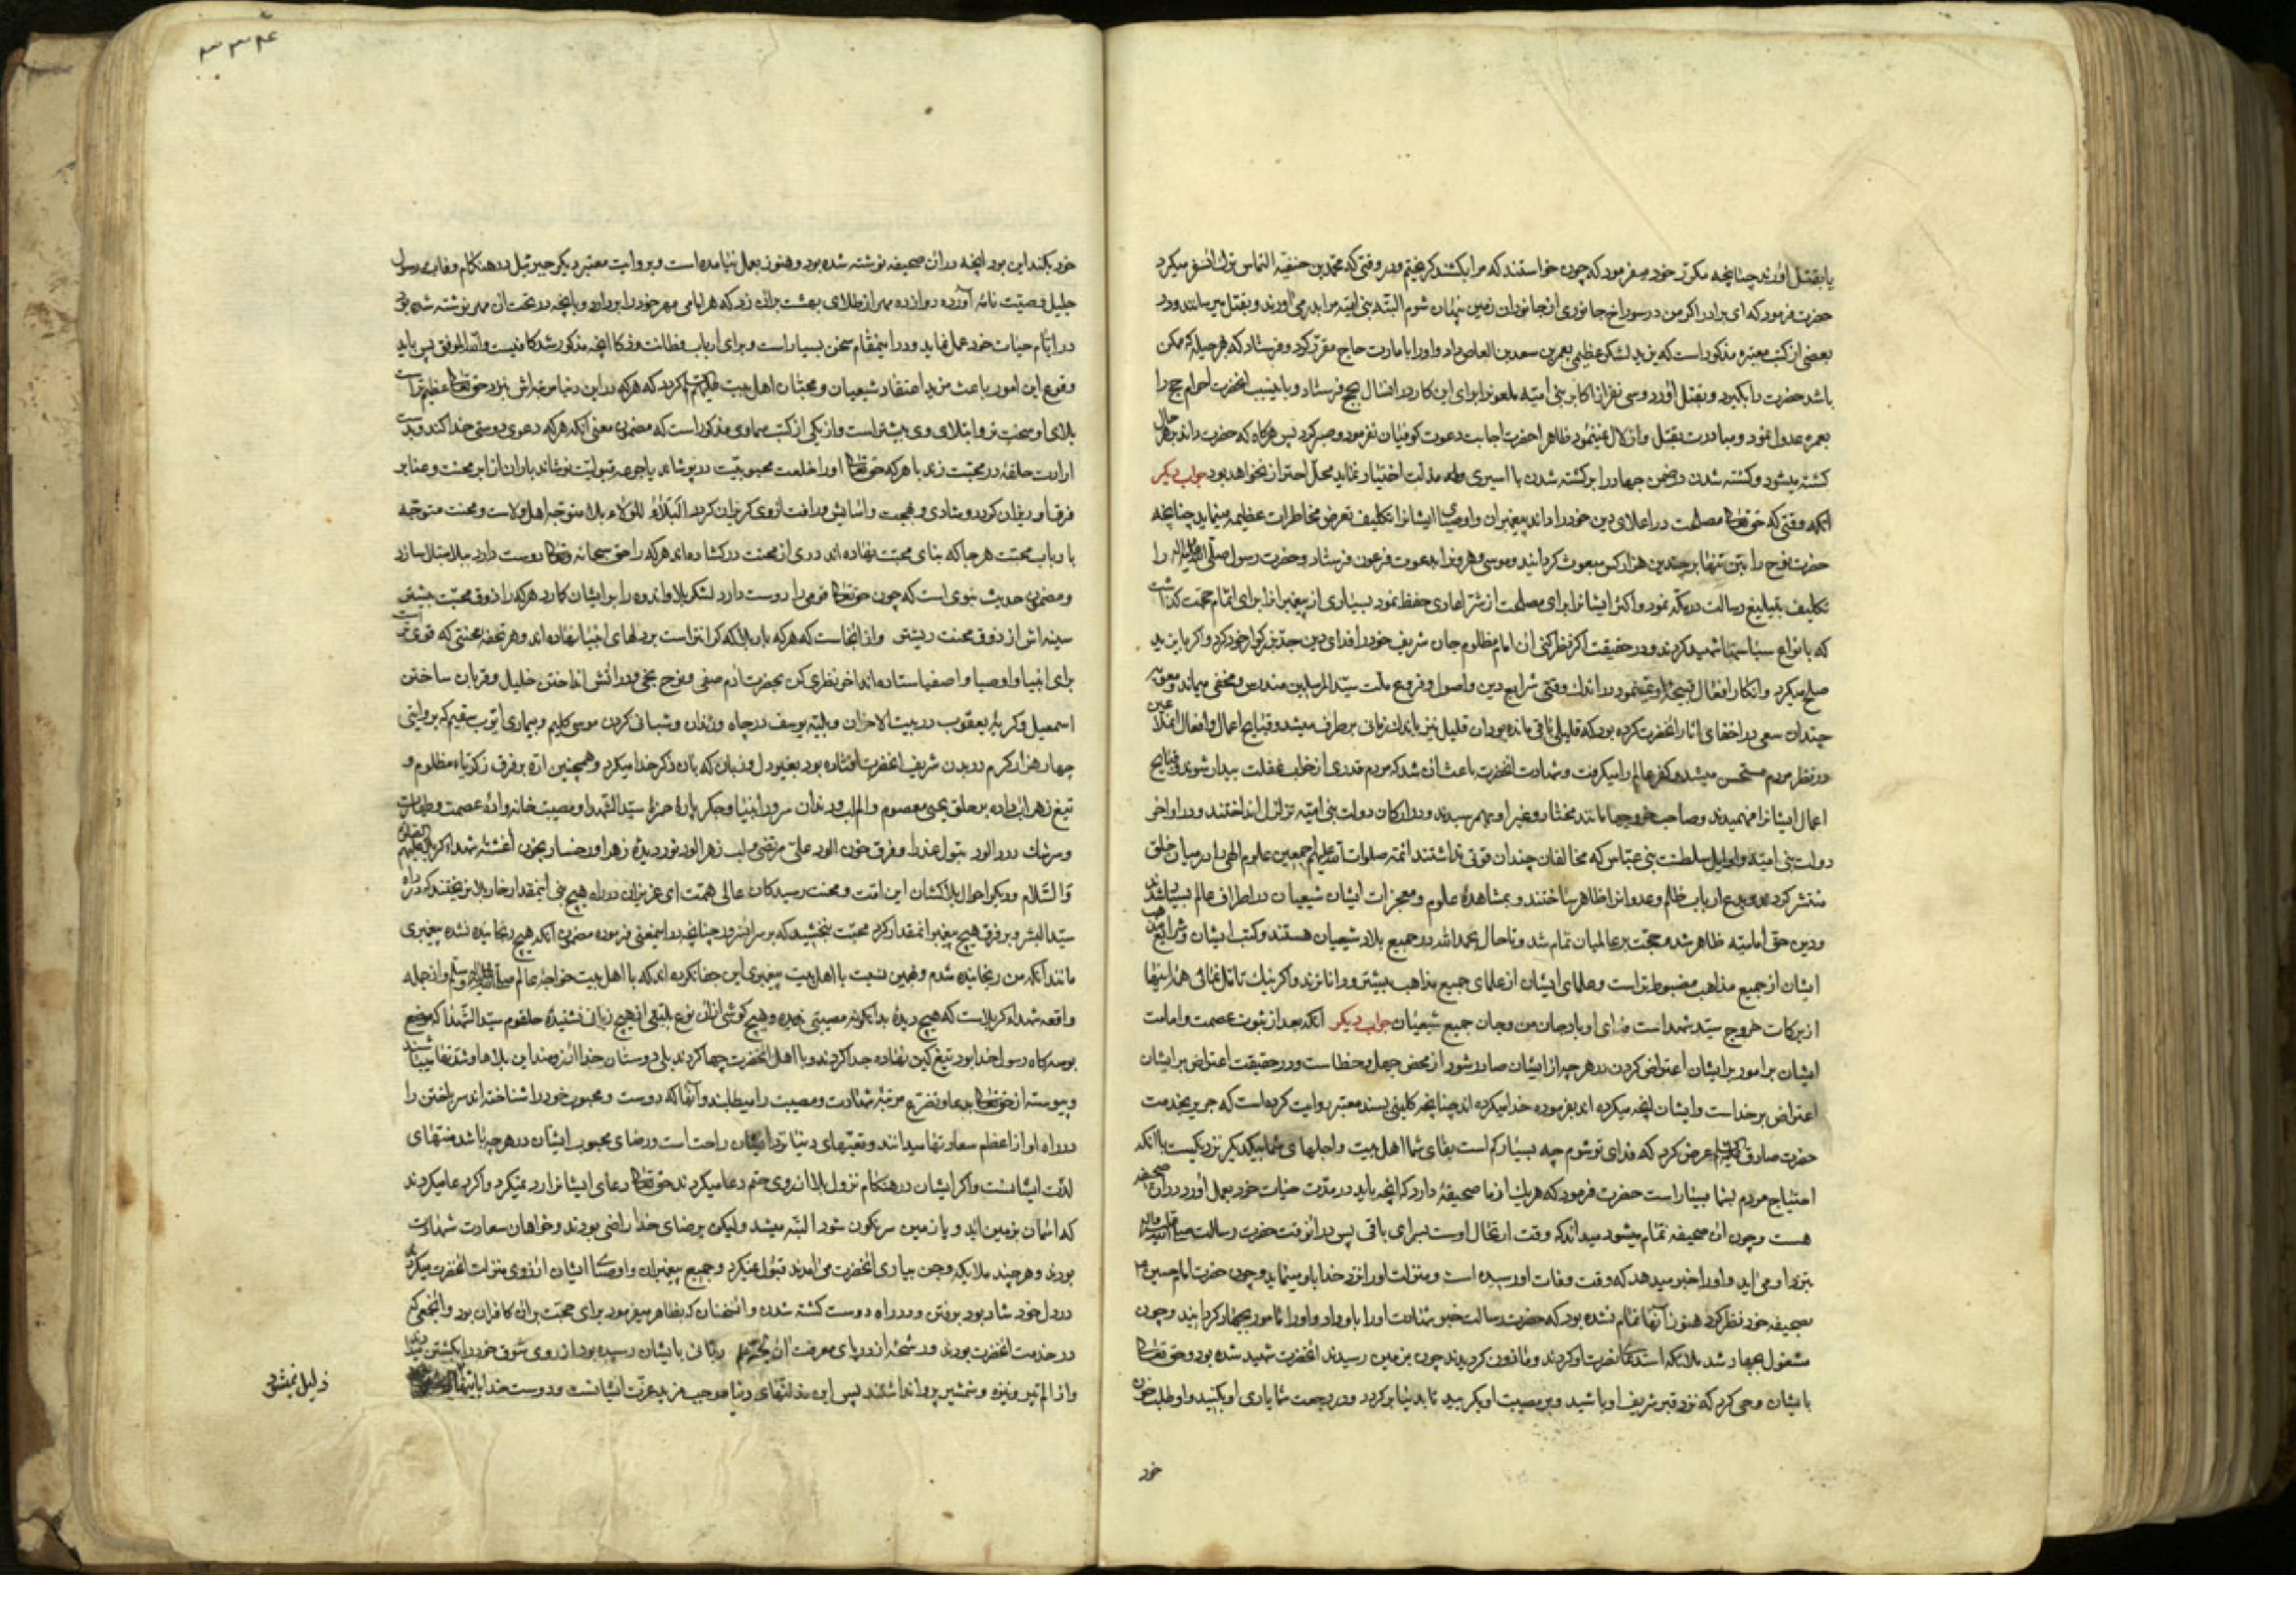 یا بقتل آورند چنانچه مکرّر خود میفرمود که چون خواستند که مرا بکشند کریختم و در وقتی که محمّد بن حنفیّه التماس ترک انسفر میکرد
حضرت فرمود که ای برادر اکر من در سوراخ جانوری از جانوران زمین پنهان شوم البتّه بنی امیّه مرا بدر می آورند و بقتل میرسانند و در
بعضی از کتب معتبره مذکور است که یزید لشکر عظیمی بعمر بن سعد بن العاص داد و اورا بامارت حاج مقرّر کرد و فرستاد که هر حیله که ممکن
باشد حضرت را بکیرد و بقتل آورد و سی نفر از اکابر بنی امیّه ملعونرا برای این کار در انسال بحج فرستاد و باینسبب انحضرت احرام حج را
بعمره عدول نمود و ظاهرا حضرت اجابت دعوت کوفیان نفرمود و صبر کرد پس هرکاه که حضرت داند بهر حال
کشته میشود و کشته شدن در ضمن جهاد را بر کشته شدن با اسیری و مذلّت اختیار نماید محلّ احتراز نخواهد بود جواب دیکر
انکه وقتی که حق تعالی مصلحت در اعلای دین خود را داند پیغمبران و اوصیای ایشانرا تکلیف تعرض مخاطرات عظیمه مینماید چنانچه
حضرت نوح را بتن تنها بر چندین هزار کس مبعوث کردانید و موسی و هرونرا بدعوت فرعون فرستاد و حضرت رسول صلّی الله علیه و اله را
تکلیف بتبلیغ رسالت در مکّه نمود و اکثر ایشانرا برای مصلحت از شرّ اعادی حفظ نمود بسیاری از پیغمبرانرا برای اتمام حجّت کذاشت
که بانواع سیاستها شهید کردند و در حقیقت اکر نظر کنی ان امام مظلوم جان شریف خود را فدای دین جدّ بزرکوار خود کرد و اکر با یزید
صلح میکرد و انکار افعال قبیحهٔ او نمینمود در اندک وقتی شرایع دین و اصول و فروع ملّت سیّد المرسلین مندرس و مخفی میماند و معویه
چندان سعی در اخفای اثار انحضرت کرده بود که قلیلی باقی مانده بود ان قلیل نیز باندک زمانی برطرف میشد و قبایح اعمال و افعال ان ملاعین
در نظر مردم مستحسن میشد و کفر عالم را میکرفت و شهادت انحضرت باعث ان شد که مردم قدری از خواب غفلت بیدار شوند و قبایح
اعمال ایشانرا فهمیدند و صاحب خروجها مانند مختار و غیر او بهمرسیدند و در ارکان دولت بنی امیّه تزلزل انداختند و در اواخر
دولت بنی امیّه و اوایل سلطنت بنی عبّاس که مخالفان چندان قوّتی نداشتند ائمّه صلوات الله علیهم اجمعین علوم الهی را در میان خلق
منتشر کردند و بدع ارباب ظلم و عدوانرا ظاهر ساختند و بمشاهدهٔ علوم و معجزات ایشان شیعیان در اطراف عالم بسیار شدند
و دین حق امامیّه ظاهر شد و حجّت بر عالمیان تمام شد و تا حال بحمد الله در جمیع بلاد شیعیان هستند و کتب ایشان و شرایع مذهب
ایشان از جمیع مذاهب مضبوط تر است و علمای ایشان از علمای جمیع مذاهب بیشتر و دانا ترند و اکر نیک تامّل نمائی همه اینها
از برکات خروج سیّد شهدا است فدای او باد جان من و جان جمیع شیعیان جواب دیکر انکه بعد از ثبوت عصمت و امامت
ایشان بر امور بر ایشان اعتراض کردن در هرچه از ایشان صادر شود از محض جهل و خطا ست و در حقیقت اعتراض بر ایشان
اعتراض بر خدا ست و ایشان انچه میکرده اند بفرموده خدا میکرده اند چنانچه کلینی بسند معتبر روایت کرده است که حریز بخدمت
حضرت صادق علیه السلام عرض کرد که فدای تو شوم چه بسیار کم است بقای شما اهل بیت و اجلهای شما بیکدیکر نزدیکست با انکه
احتیاج مردم بشما بسیار است حضرت فرمود که هر یک از ما صحیفهٔ دارد که انچه باید در مدّت حیات خود بعمل آورد در ان صحیفه
هست و چون ان صحیفه تمام میشود میداند که وقت ارتحال اوست بسرای باقی پس در انوقت حضرت رسالت صلی الله علیه و اله
بنزد او می آید و او را خبر میدهد که وقت وفات او رسیده است و منزلت او را نزد خدا باو مینماید و چون حضرت امام حسین ع
صحیفه خود نظر کرد هنوز آنها تمام نشده بود که حضرت رسالت خبر شهادت او را باو داد و او را مامور بجهاد کردانید و چون
مشغول جهاد شد ملائکه استدعای نصرت او کردند و ماذون کردیدند چون بزمین رسیدند انحضرت شهید شده بود و حق تعالی
بایشان وحی کرد که نزد قبر شریف او باشید و بر مصیبت او بکریید تا بدنیا برکردد و در رجعت شما یاری او بکنید و او طلب خون
خود
۳۳۴
خود بکند این بود انچه در ان صحیفه نوشته شده بود و هنوز بعمل نیامده است و بروایت معتبر دیکر جبرئیل در هنکام وفات رسول
جلیل وصیّت نامهٔ آورده دوازده مهر از طلای بهشت بر ان زد که هر امامی مهر خود را بردارد و بانچه در تحت ان مهر نوشته شده بود
در ایّام حیات خود عمل نماید و در اینمقام سخن بسیار است و برای ارباب فطانت و ذکا انچه مذکور شد کافیست و الله الموفّق پس باید
وقوع این امور باعث مزید اعتقاد شیعیان و محبّان اهل بیت علیهم السلام کردد که هر که در این دنیا مرتبه اش نزد حق تعالی عظیم تر است
بلای او سخت تر و ابتلای وی بیشتر است و از یکی از کتب سماوی مذکور است که مضمون معنی انکه هر که دعوی دوستی خدا کند و بدست
ارادت حلقه در محبّت زند با هر که حق تعالی او را خلعت محبوبیّت در پوشاند یا جرعه قبولیّت نوشاند باران از ابر محنت و عنا بر
فرق او ریزان کردد و شادی و بهجت و اسایش و رافت از وی کریزان کردد البلاء للولاء بلا متوجّه اهل ولاست و محنت متوجّه
با رباب محبّت هر جا که بنای محبّت نهاده اند دری از محنت در کشاده اند هر که را حق سبحانه و تعالی دوست دارد ببلا مبتلا سازد
و مضمون حدیث نبوی است که چون حق تعالی قومی را دوست دارد لشکر بلا و اندوه را بر ایشان کمارد هر که را ذوق محبّت بیشتر
سینه اش از ذوق محنت ریشتر و از انجاست که هر که بار بلا که کرانتر است بر دلهای انبیا نهاده اند و هر تحفه محنتی که قوی تر است
برای انبیا و اوصیا و اصفیا ستاده اند اخر نظری کن بحضرت ادم صفی و نوح نجی و در اتش انداختن خلیل و قربان ساختن
اسمعیل و کریهٔ یعقوب در بیت الاحزان و بلیّه یوسف در چاه و زندان و شبانی کردن موسی کلیم و بیماری ایّوب سقیم که بروایتی
چهار هزار کرم در بدن شریف انحضرت افتاده بود بغیر دل و زبان که بان ذکر خدا میکرد و همچنین ارّه بر فرق زکریّاء مظلوم و
تیغ زهر اب داده بر حلق یحیی معصوم و الم لب و دندان سرور انبیا و جکر پارهٔ حمزهٔ سیّد الشّهدا و مصیبت خانوادهٔ عصمت و طهارت
و سرشک درد الود بتول عذرا و فرق خون الود علیّ مرتضی و لب زهر الود نور دیدهٔ زهرا و رخسار بخون آغشتهٔ شهداء کربلا علیهم الصلوة
و السّلام و دیکر احوال بلاکشان این امّت و محنت رسیدکان عالی همّت ای عزیزان در راه هیچ نبی اینمقدار خار بلا نریختند که در راه
سیّد البشر و بر فرق هیچ پیغمبر انمقدار کرد محنت نبیختند که بر سر انسرور چنانچه در اینمعنی فرموده مضمون انکه هیچ رنجانیده نشده پیغمبری
مانند آنکه من رنجانیده شدم و همین نسبت با اهل بیت پیغمبری این جفا نکرده اند که با اهل بیت خواجهٔ عالم صلّی الله علیه و آله و سلم و از جمله
واقعه شهداء کربلاست که هیچ دیدهٔ بدانکونه مصیبتی ندیده و هیچ کوشی از ان نوع بلیّتی از هیچ زبانی نشنیدهٔ حلقوم سیّد الشّهدا که موضع
بوسه کاه رسول خدا بود تیغ کین نهاده جدا کردند و با اهل انحضرت چها کردند بلی دوستان خدا ارزومند این بلاها و شدّتها میباشند
و پیوسته از حق تعالی بدعا و تضرّع مرتبهٔ شهادت و مصیبت را میطلبند و آنها که دوست و محبوب خود را شناخته اند سر باختن را
در راه او از اعظم سعادتها میدانند و تعبهای دنیا نزد ایشان راحت است و رضای محبوب ایشان در هرچه باشد منتهای
لذّت ایشانست و اکر ایشان در هنکام نزول بلا از روی حتم دعا میکردند حق تعالی دعای ایشانرا رد نمیکرد و اکر دعا میکردند
که اسمان بزمین اید و یا زمین سرنکون شود البتّه میشد ولیکن برضای خدا راضی بودند و خواهان سعادت شهادت
بودند و هرچند ملایکه و جن بیاری انحضرت می آمدند قبول نمیکرد و جمیع پیغمبران و اوصیاء ایشان ارزوی منزلت انحضرت میکردند
در دل خود شاد بود برفتن و در راه دوست کشته شدن و انسخنان که بظاهر میفرمود برای حجّت بر ان کافران بود و انجمعی که
در خدمت انحضرت بودند و رشحهٔ از دریای معرفت ان بایشان رسیده بود از روی شوق خود را بکشتن میدادند
و از الم تیر و نیزه و شمشیر پروا نداشتند پس این مذلّتهای دنیا موجب مزید عزّت ایشانست و دوست خدا باینها
ذلیل نمیشود